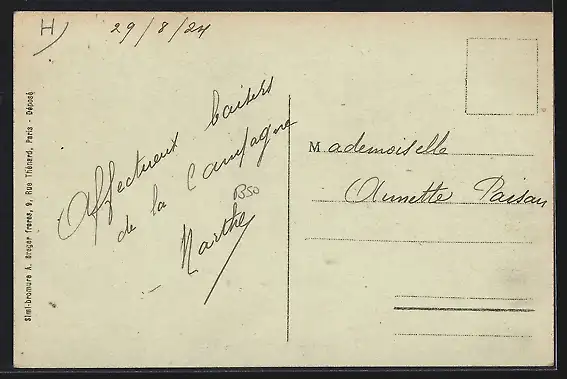 H
29/8/24
Affectueux baisers
de la Campagne
BSO
Marthe
Mademoiselle
Annette Paisan
Simi-bromure A. Breger frères, 9, Rue Thénard, Paris - Déposé